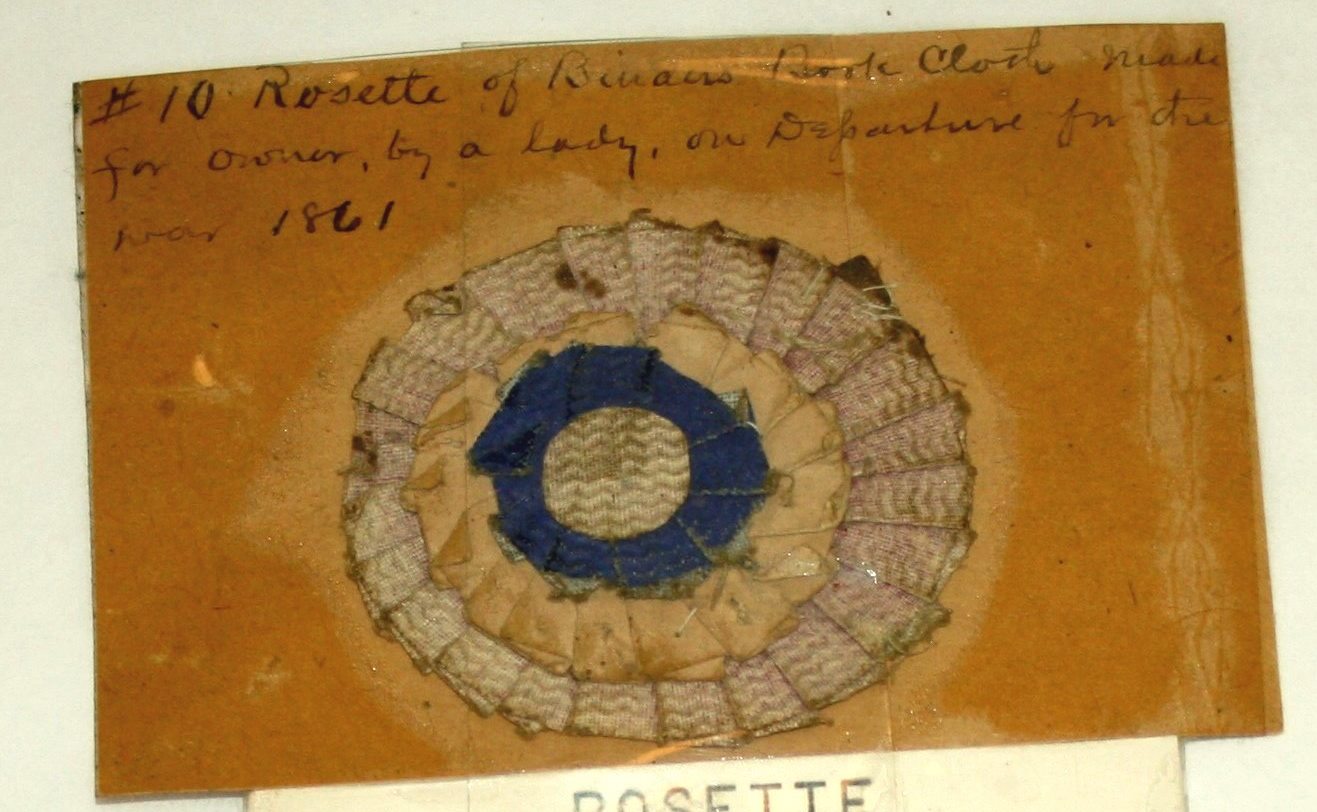 # 10 Rosette of Binders Book Cloth made
for owner, by a lady, on Departure for the
war 1861
ROSETTE